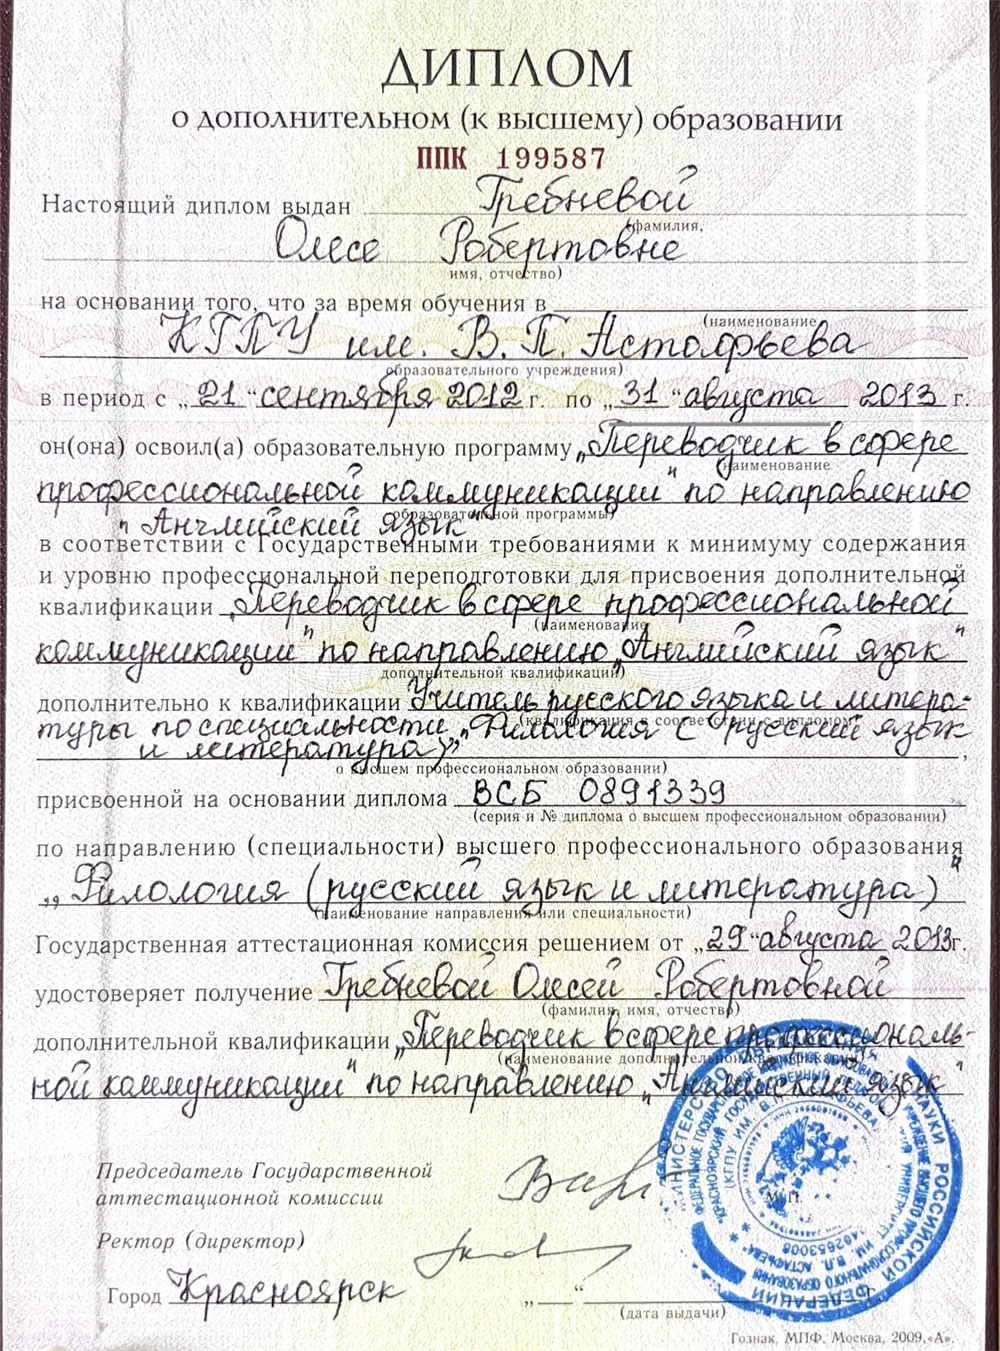 ДИПЛОМ
о дополнительном (к высшему) образовании
ППК 199587
Настоящий диплом выдан Гребневой
(фамилия,
Олесе Робертовне
имя, отчество)
на основании того, что за время обучения в
(наименование
КГПУ им. В.П. Астафьева
образовательного учреждения)
в период с „21“ сентября 2012 г. по „31“ августа 2013 г.
он(она) освоил(а) образовательную программу „Переводчик в сфере
(наименование
профессиональной коммуникации“ по направлению
образовательной программы)
„Английский язык“
в соответствии с Государственными требованиями к минимуму содержания
и уровню профессиональной переподготовки для присвоения дополнительной
квалификации „Переводчик в сфере профессиональной
(наименование
коммуникации“ по направлению „Английский язык“
дополнительной квалификации)
дополнительно к квалификации Учитель русского языка и литера-
(квалификация в соответствии с дипломом
туры по специальности „Филология (русский язык
и литература)“,
о высшем профессиональном образовании)
присвоенной на основании диплома ВСБ 0891339
(серия и № диплома о высшем профессиональном образовании)
по направлению (специальности) высшего профессионального образования
„Филология (русский язык и литература)“
(наименование направления или специальности)
Государственная аттестационная комиссия решением от „29“ августа 2013г.
удостоверяет получение Гребневой Олесей Робертовной
(фамилия, имя, отчество)
дополнительной квалификации „Переводчик в сфере профессиональ-
(наименование дополнительной квалификации)
ной коммуникации“ по направлению „Английский язык“
Председатель Государственной
аттестационной комиссии
М.П.
Ректор (директор)
Город Красноярск „ “
(дата выдачи)
Гознак, МПФ, Москва, 2009, «А».
МИНИСТЕРСТВО ОБРАЗОВАНИЯ И НАУКИ РОССИЙСКОЙ ФЕДЕРАЦИИ